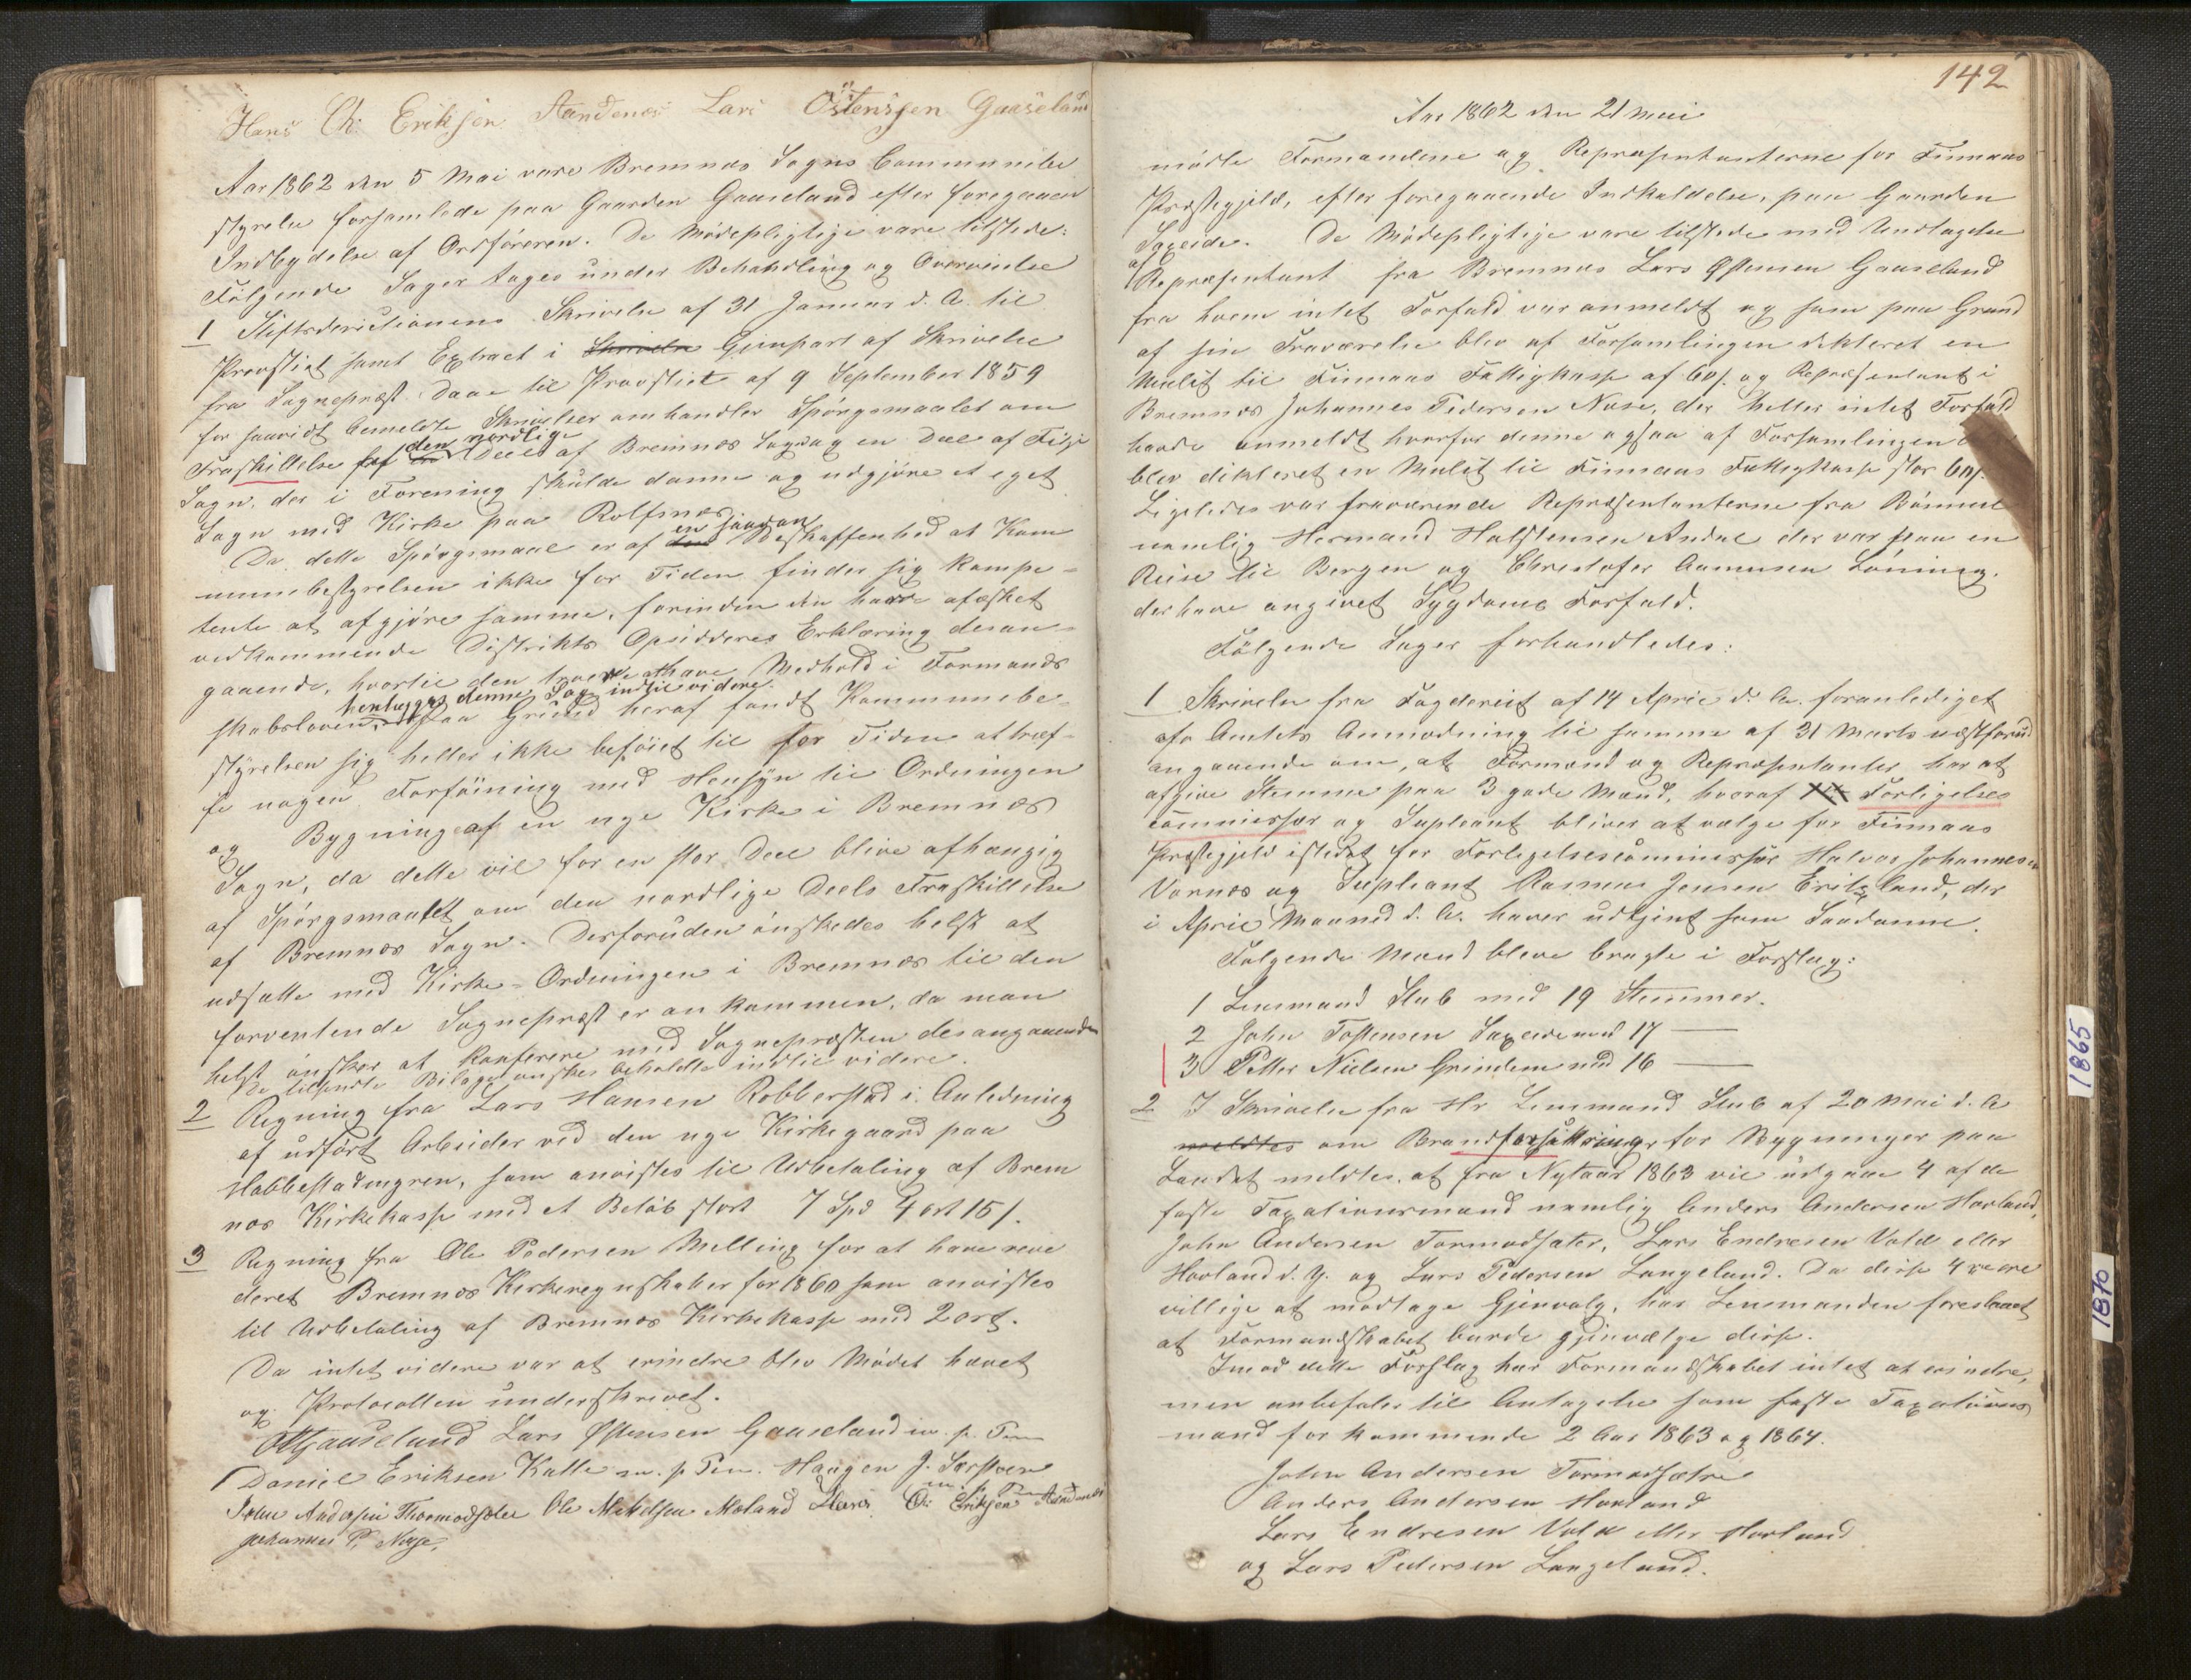 Hans Ch: Eriksen Aandenæs Lars Östensen Gaaseland
Aar 1862 den 5 Mai vare Bremnæs Sogns Communebe
styrelse forsamlede paa Gaarden Gaaseland efter foregaaen
Indbydelse af Ordføreren. De Mødepligtige vare tilstede:
Følgende Sager toges under Behandling og Overveielse
1 Stiftsderictionens Skrivelse af 31 Januar d. A. til
Provstiet samt Extract i Skrivelse Genpart af Skrivelse
fra Sognepræst Daae til Provstiet af 9 September 1859
for saavidt bemeldte Skrivelser omhandler Spörgsmaalet om
Fraskillelse af den nordlige Deel af Bremnæs Sogn og en Deel af Fitje
Sogn, der i Forening skulde danne og udgjøre et eget
Sogn med Kirke paa Rolfsnæs.
Da dette Spörgsmaal er af en saadan Beskaffenhed at Kom
munebestyrelsen ikke for Tiden finder sig kompe-
tente at afgjøre samme, forinden den have afæsket
vedkommende Distrikts Opsidderes Erklæring desan-
gaaende, hvortil den troer at have Medhold i Formands
skabsloven, henlægges denne Sag indtil videre.
Paa Grund heraf fandt Kommunebe-
styrelsen sig heller ikke beföiet til for Tiden at træf-
fe nogen Forföining med Hensyn til Ordningen
og Bygning af en nye Kirke i Bremnæs
Sogn, da dette vil for en stor Deel blive afhængig
af Spörgsmaalet om den nordlige Deels Fraskillelse
af Bremnæs Sogn. Desforuden önskedes helst at
udsætte med Kirke-Ordningen i Bremnæs til den
forventende Sognepræst er ankommen, da man
helst önsker at konferere med Sognepræsten desangaaende
De tilsendte Bilage önskes beholdte indtil videre.
2 Regning fra Lars Hansen Robberstad i Anledning
af udfört Arbeider ved den nye Kirkegaard paa
Habbestadmyren, som anvistes til Udbetaling af Brem
næs Kirkekasse med et Beløb stort 7 Spd 4 ort 15 s.
3 Regning fra Ole Pedersen Melling for at have revi
deret Bremnæs Kirkeregnskaber for 1860 som anvistes
til Udbetaling af Bremnæs Kirkekasse med 2 ort.
Da intet videre var at erindre blev Mødet hævet
og Protocollen underskrevet.
Gaaseland Lars Østensen Gaaseland m. p. Pen
Daniel Eriksen Kalle m. p. Pen. Haagen J.
m. p. Pen
John Andersen Thormodsæter Ole Mikkelsen Mæland Hans Ch: Eriksen Aandenæs
Johannes P. Nese.
142
Aar 1862 den 21 Mai
mödte Formændene og Repræsentanterne for Finnaas
Præstegjeld, efter foregaaende Indkaldelse, paa Gaarden
Sexeide. De Mødepligtige vare tilstede med Undtagelse
af Repræsentant fra Bremnæs Lars Østensen Gaaseland
fra hvem intet Forfald var anmeldt og som paa Grund
af sin Fraværelse blev af Forsamlingen dikteret en
Mulct til Finnaas Fattigkasse af 60 s. og Repræsentant i
Bremnæs Johannes Pedersen Nese, der heller intet Forfald
havde anmeldt hvorfor denne ogsaa af Forsamlingen
blev dikteret en Mulct til Finnaas Fattigkasse stor 60 s.
Ligeledes var fraværende Repræsentanterne fra Bömmel
nemlig Hermand Halstensen Andal der var paa en
Reise til Bergen og Christofer Aamunsen Löning,
der have angivet Sygdoms Forfald.
Følgende Sager forhandledes:
1 Skrivelse fra Fogderiet af 14 April d. A. foranlediget
afr Amtets Anmodning til samme af 31 Marts næstforud
angaaende om, at Formænd og Repræsentanter har at
afgive Stemme paa 3 gode Mænd, hvoraf Forligelses
commissær og Supleant bliver at vælge for Finnaas
Præstegjeld istedet for Forligelsescommissær Halvor Johannesen
Vornæs og Supleant Rasmus Jensen Eritzland, der
i April Maaned d. A. haver udtjent som Saadanne.
Følgende Mænd bleve bragte i Forslag:
1 Lensmand Stub med 19 Stemmer.
2 John Tostensen Sexeide med 17 —
3 Petter Nielsen Grindem med 16 —
2 I Skrivelse fra Hr Lensmand Stub af 20 Mai d. A
meldtes om Brandforsikringr for Bygninger paa
Landet meldtes, at fra Nytaar 1863 vil udgaae 4 af de
faste Taxationsmænd nemlig Anders Andersen Hovland,
John Andersen Tormodsæter, Lars Endresen Vold eller
Hovland d. y. og Lars Pedersen Langeland. Da disse 4 vare
villige at modtage Gjenvalg, har Lensmanden foreslaaet
at Formandskabet burde gjenvælge disse.
Imod dette Forslag har Formandskabet intet at erindre,
men anbefaler til Antagelse som faste Taxations
mænd for kommende 2 Aar 1863 og 1864.
John Andersen Tormodsætre
Anders Andersen Hovland
Lars Endresen Vold eller Hovland
og Lars Pedersen Langeland.
1865
1870